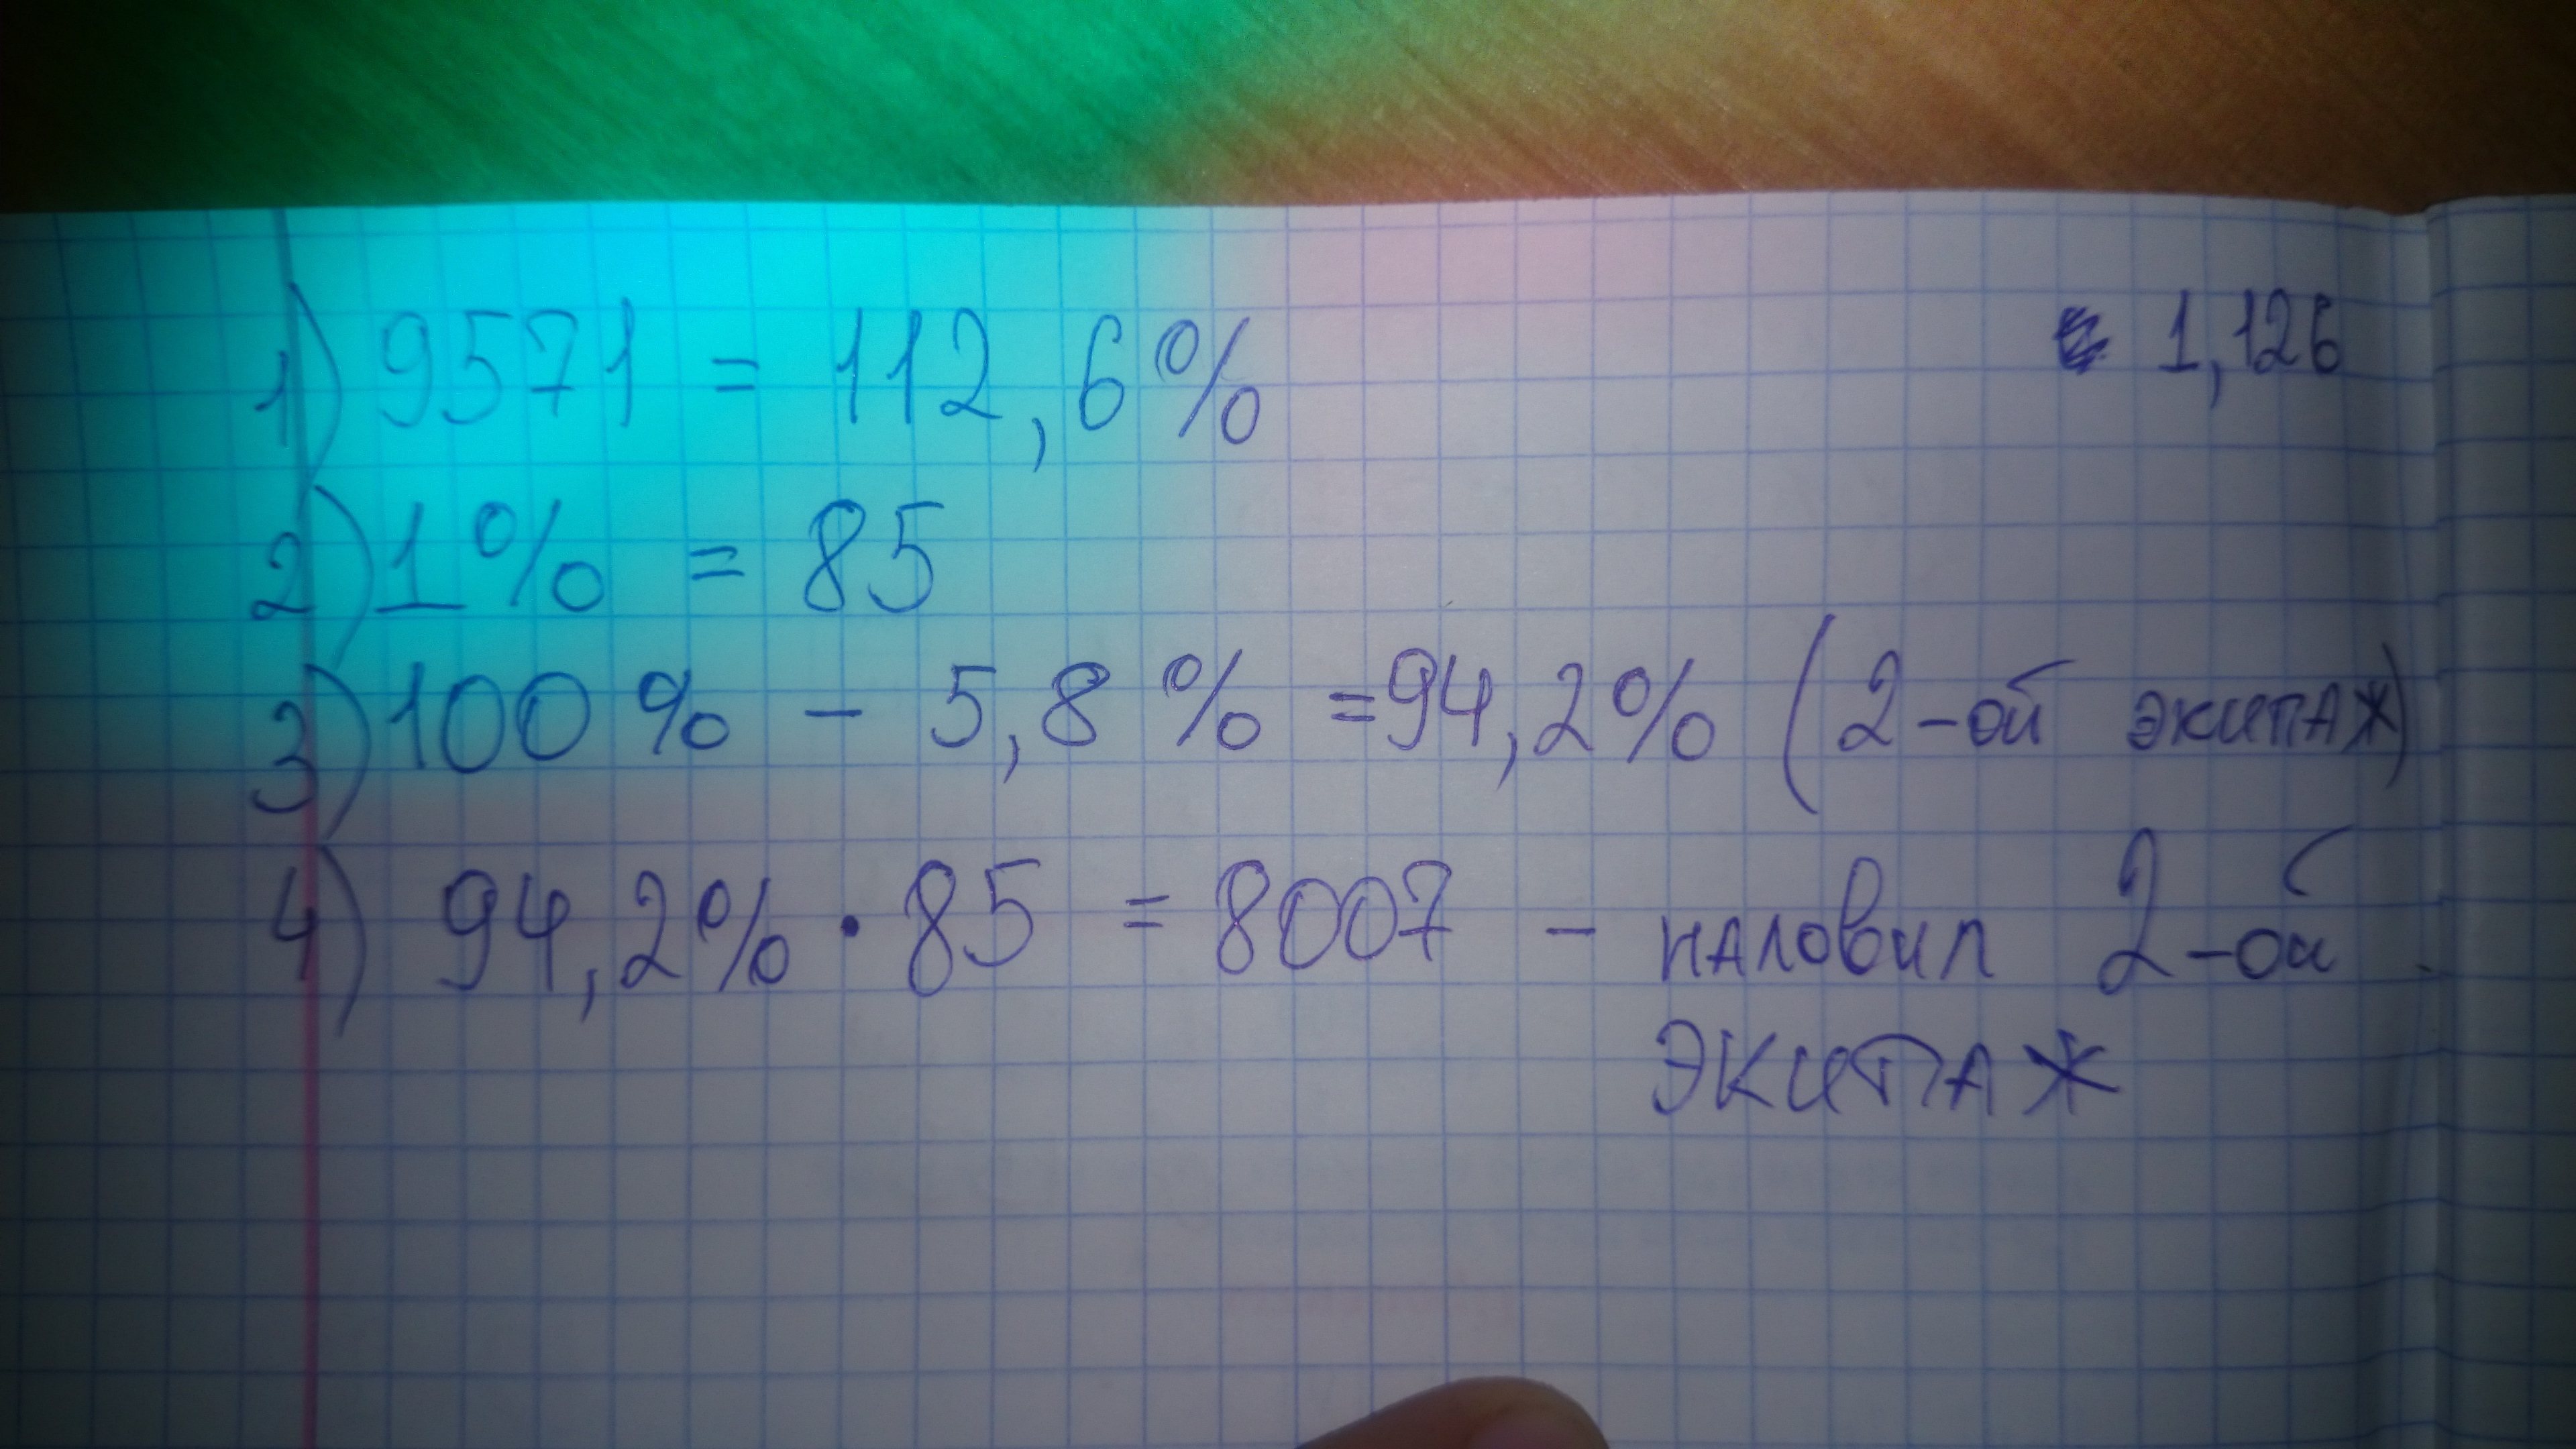 1) 9571 = 112,6% 1,126
2) 1% = 85
3) 100% - 5,8% = 94,2% (2-ой экипаж)
4) 94,2% • 85 = 8007 - наловил 2-ой
экипаж